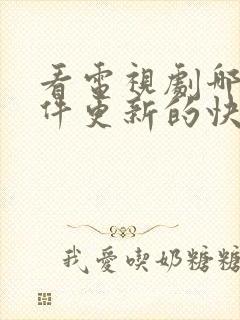 看電視劇哪
件更新的快
我愛喫奶糖糖